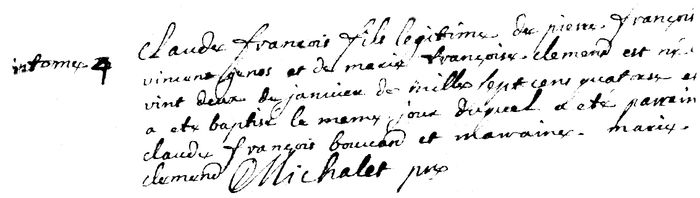 Claude françois fils legitime de pierre françois
vincent genos et de marie françoise clement est né
vint deux de janvier de mille sept cens quatorse et
a ete baptise le meme jour duquel a eté parrain
claude françois boucard et marraine marie
clement Michalet ptre